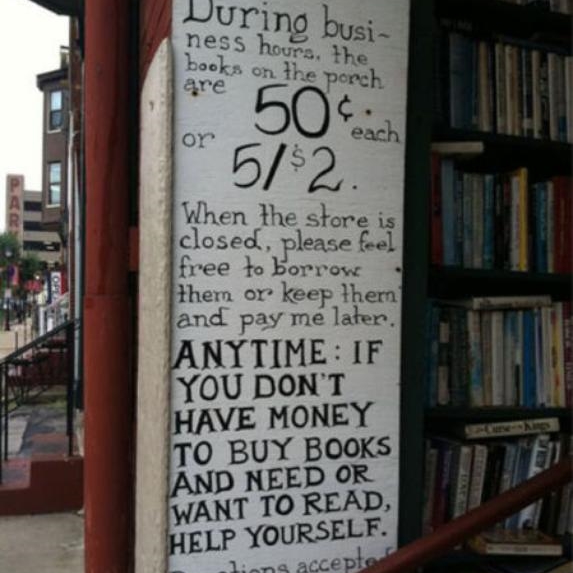 During busi-
ness hours, the
books on the porch
are 50¢ each
or 5/$2.
When the store is
closed, please feel
free to borrow
them or keep them
and pay me later.
ANYTIME: IF
YOU DON'T
HAVE MONEY
TO BUY BOOKS
AND NEED OR
WANT TO READ,
HELP YOURSELF.
accepted
PAR
Curse of the Kings